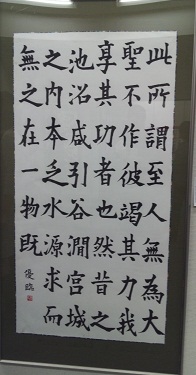 此所謂至人無為大
聖不作彼竭其力我
享其功者也然昔之
池沼咸引谷澗宮城
之內本乏水源求而
無之在一物既
優臨